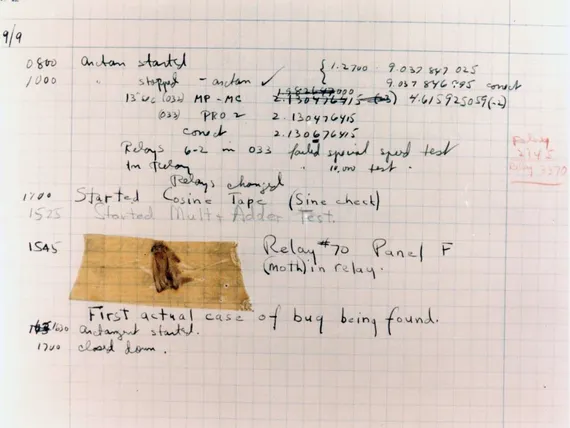 9/9
0800 antan started
1000 " stopped - antan ✓ { 1.2700 9.037 847 025
9.037 846 995 conect
13" uc (032) MP-MC 2.130476415 (-3) 4.615925059(-2)
(033) PRO 2 2.130476415
conect 2.130676415
Relays 6-2 in 033 failed special speed test
In Relay " 10.000 test.
Relays changed
Relay
2145
Relay 3370
1700 Started Cosine Tape (Sine check)
1525 Started Mult + Adder Test.
1545 Relay #70 Panel F
(moth) in relay.
First actual case of bug being found.
1630 antangent started.
1700 closed down.